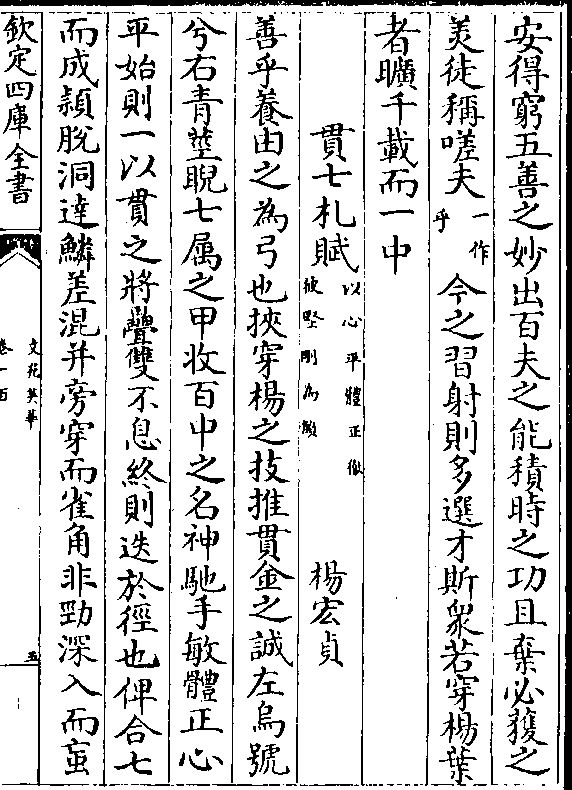 安得窮五善之妙出百夫之能積時之功且棄必獲之
美徒稱嗟夫一作乎今之習射則多選才斯衆若穿楊葉
者曠千載而一中
貫七札賦以心平體正徹彼堅剛為韻楊宏貞
善乎養由之為弓也挾穿楊之技推貫金之誠左烏號
兮右青莖睨七属之甲收百中之名神馳手敏體正心
平始則一以貫之將疊雙不息終則迭於徑也俾合七
而成頴脫洞達鱗差混并旁穿而雀角非勁深入而䖟
欽定四庫全書
文苑英華
卷一百
五